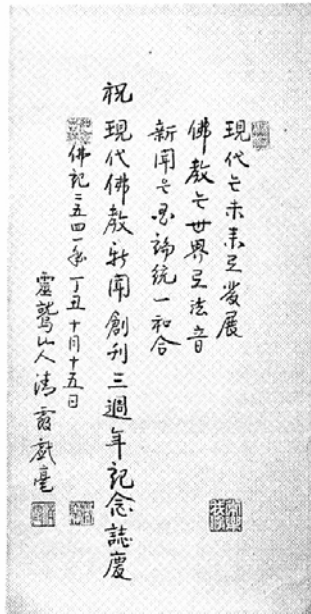 現代는未來의發展
佛教는世界의法音
新聞은論統一和合
祝 現代佛教新聞創刊三週年記念誌慶
佛記二五四一年丁丑十月十五日
靈鷲山人清霞毫